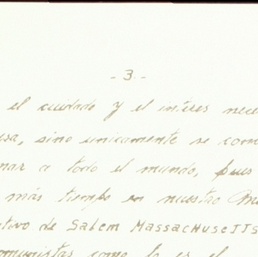 - 3 -
el cuidado y el interes nece
sa, sino unicamente se com
mar a todo el mundo, pues
más tiempo en nuestro
tivo de Salem Massachusetts
omunistas como lo es el